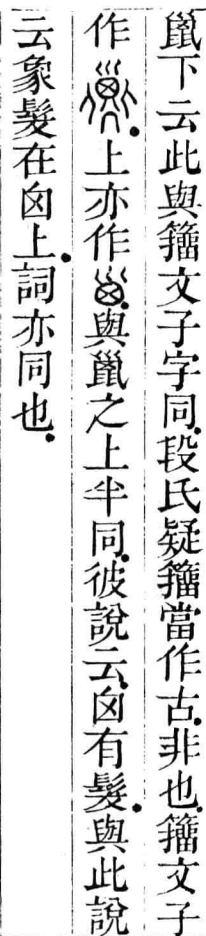 鬣下云此與籒文子字同.段氏疑籒當作古.非也.籒文子
作.上亦作.與鬣之上半同.彼說云.囟有髮.與此說
云象髮在囟上.詞亦同也.